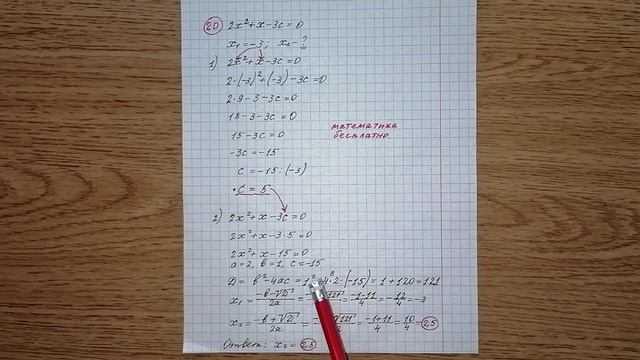 20 2x²+x-3c=0
x₁=-3; x₂-?
1) 2x²+x-3c=0
2·(-3)²+(-3)-3c=0
2·9-3-3c=0
18-3-3c=0
15-3c=0
-3c=-15
c=-15:(-3)
c=5
математика
бесплатно
2) 2x²+x-3c=0
2x²+x-3·5=0
2x²+x-15=0
a=2, b=1, c=-15
D=b²-4ac=1²-4·2·(-15)=1+120=121
x₁=(-b-√D)/2a= =(-1-11)/4=-12/4=-3
x₂=(-b+√D)/2a= =(-1+11)/4=10/4=2,5
Ответ: x₂=2,5